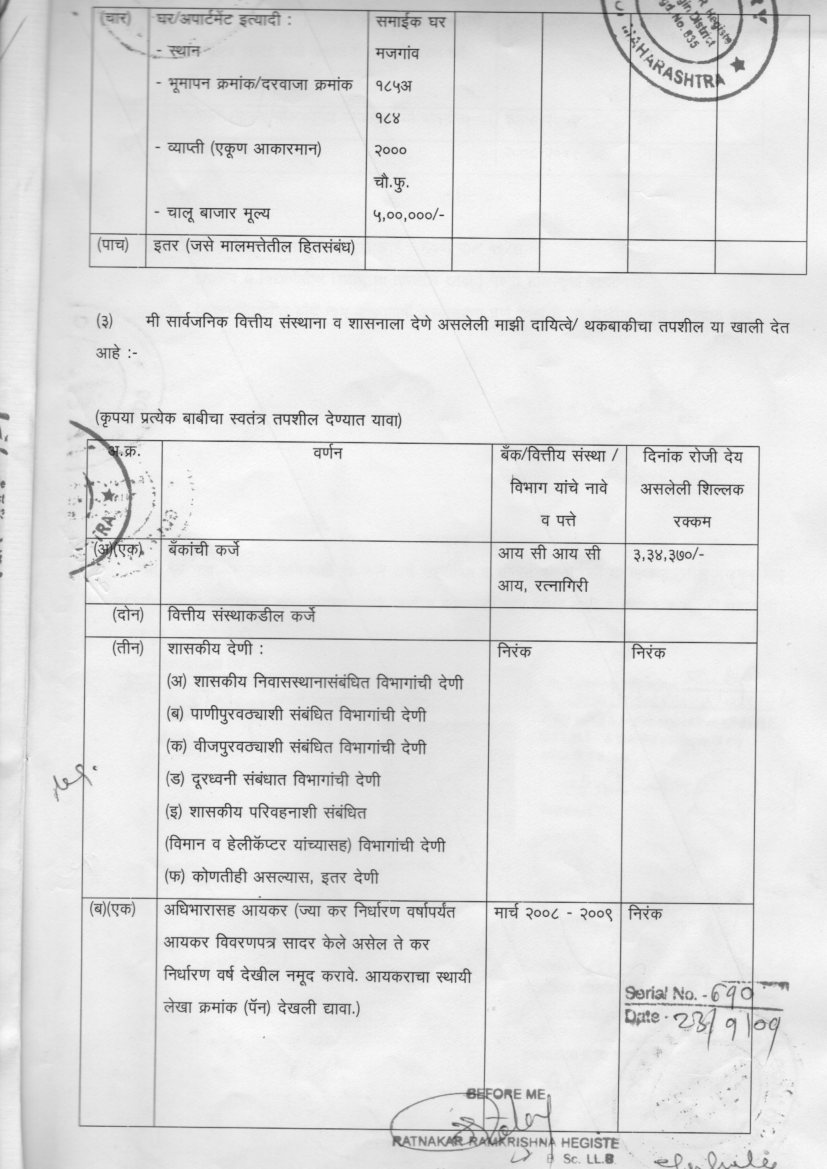 (चार) घर/अपार्टमेंट इत्यादी : समाईक घर
- स्थान मजगांव
- भूमापन क्रमांक/दरवाजा क्रमांक १८५अ
१८४
- व्याप्ती (एकूण आकारमान) २०००
चौ.फु.
- चालू बाजार मूल्य ५,००,०००/-
(पाच) इतर (जसे मालमत्तेतील हितसंबंध)
No. 835
MAHARASHTRA
(३) मी सार्वजनिक वित्तीय संस्थाना व शासनाला देणे असलेली माझी दायित्वे/ थकबाकीचा तपशील या खाली देत
आहे :-
(कृपया प्रत्येक बाबीचा स्वतंत्र तपशील देण्यात यावा)
अ.क्र. वर्णन बँक/वित्तीय संस्था / दिनांक रोजी देय
विभाग यांचे नावे असलेली शिल्लक
व पत्ते रक्कम
(अ)(एक) बँकांची कर्जे आय सी आय सी ३,३४,३७०/-
आय, रत्नागिरी
(दोन) वित्तीय संस्थाकडील कर्जे
(तीन) शासकीय देणी : निरंक निरंक
(अ) शासकीय निवासस्थानासंबंधित विभागांची देणी
(ब) पाणीपुरवठ्याशी संबंधित विभागांची देणी
(क) वीजपुरवठ्याशी संबंधित विभागांची देणी
(ड) दूरध्वनी संबंधात विभागांची देणी
(इ) शासकीय परिवहनाशी संबंधित
(विमान व हेलीकॅप्टर यांच्यासह) विभागांची देणी
(फ) कोणतीही असल्यास, इतर देणी
(ब)(एक) अधिभारासह आयकर (ज्या कर निर्धारण वर्षापर्यंत मार्च २००८ - २००९ निरंक
आयकर विवरणपत्र सादर केले असेल ते कर
निर्धारण वर्ष देखील नमूद करावे. आयकराचा स्थायी
लेखा क्रमांक (पॅन) देखली द्यावा.)
Serial No. - 690
Date - 23/9/09
BEFORE ME
RATNAKAR RAMKRISHNA HEGISTE
B Sc. LL.B